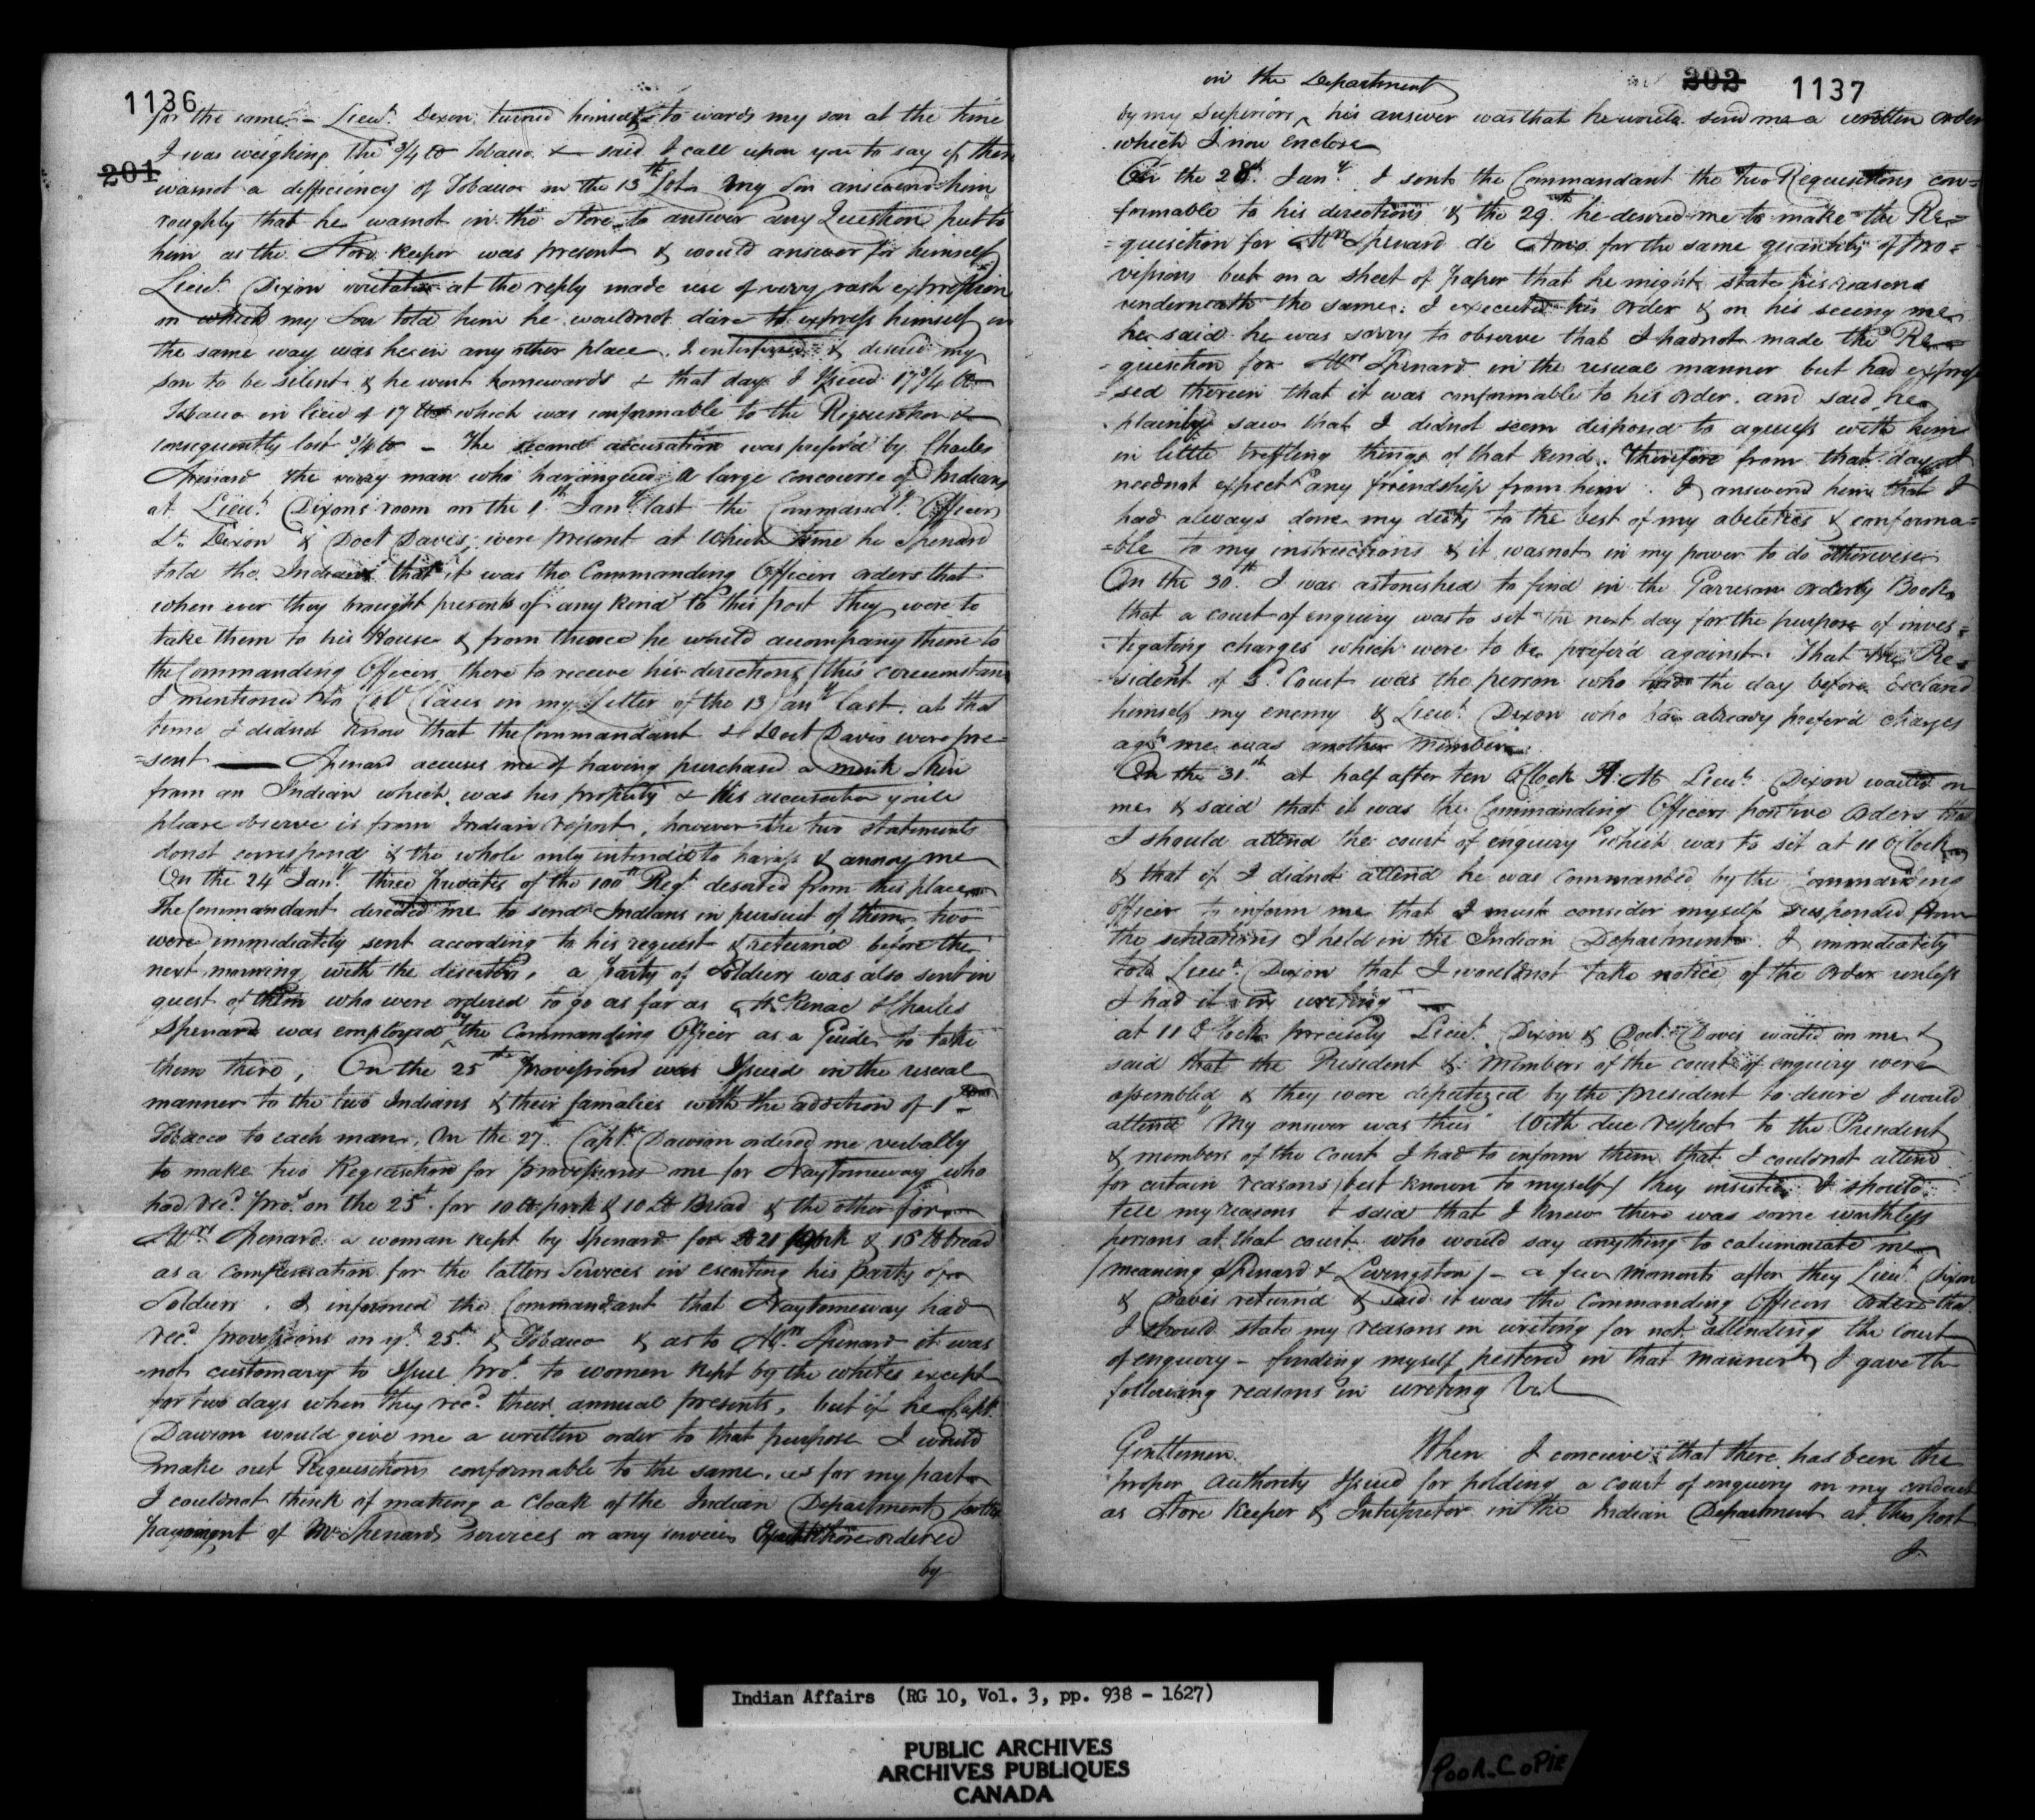 1136
201
for the same – Lieut. Dixon turned himself to wards my son at the time
I was weighing the 3/4 lb Tobacco & said I call upon you to say if there
wasnot a defficiency of Tobacco in the 13th Lot. My Son answered him
roughly that he wasnot in the Store to answer any Question put to
him as the Store keeper was present & would answer for himself
Lieut. Dixon irritated at the reply made use of very rash expression
on which my Son told him he wouldnot dare to express himself in
the same way was he in any other place. I interfered & desired my
son to be silent & he went homewards & that day I Issued 17 3/4 lb
Tobacco in lieu of 17 lbs which was conformable to the Requisition &
consequently lost 3/4 lb – The second accusation was prefer'd by Charles
Spenard the very man who harangued a large concourse of Indians
at Lieut. Dixon's room on the 1st Jany last the Commandg Officer
Lt. Dixon & Doct Davis were present at which time he Spenard
told the Indians that it was the Commanding Officers orders that
when ever they brought presents of any kind to this post they were to
take them to his House & from thence he would accompany them to
the Commanding Officers there to receive his directions (this circumstance
I mentioned to Col Claus in my Letter of the 13 Jany last. at that
time I didnot know that the Commandant & Doct Davis were pre=
=sent — Spenard accuses me of having purchased a mink Skin
from an Indian which was his property & this accusation you'le
please observe is from Indian report, however the two statements
donot correspond & the whole only intended to harrass & annoy me
On the 24th Jany three privates of the 100th Regt deserted from this place
The Commandant directed me to send Indians in pursuit of them, two
were immediately sent according to his request & returned before the
next morning with the deserters, a party of Soldiers was also sent in
quest of them who were ordered to go as far as McKenac & Charles
Spenard was employed by the Commanding Officer as a Guide to take
them there, On the 25th Provissions was Issued in the usual
manner to the two Indians & their families with the addition of 1
Tobacco to each man. On the 27th Captn Dawson ordered me verbally
to make two Requisitions for provissions one for Naytomeway who
had recd provs on the 25th for 10 lb pork & 10 lb Bread & the other for
Mrs Spenard a woman kept by Spenard for 21 pork & 16 lb bread
as a compensation for the latters Services in escorting his party of
Soldiers. I informed the Commandant that Naytomeway had
recd provissions on ye 25th & Tobacco & as to Mrs Spenard it was
not customary to Issue Provs to women kept by the whites except
for two days when they recd their annual presents, but if he Capt.
Dawson would give me a written order to that purpose I would
make out Requisitions conformable to the same, as for my part
I couldnot think of making a cloak of the Indian Department for the
payment of Mr Spenards services or any services ordered
by
202 1137
in the Department
by my Superiors ^ his answer was that he would send me a written order
which I now enclose
On the 28th Jany I sent the Commandant the two Requisitions con=
formable to his directions & the 29th he desired me to make the Re=
=quisition for Mrs Spenard for the same quantity of Pro=
vissions but on a sheet of paper that he might state his reasons
underneath the same: I executed his order & on his seeing me
he said he was sorry to observe that I hadnot made the Re
=quisition for Mrs Spenard in the usual manner but had expres
=sed therein that it was conformable to his order. and said he
plainly saw that I didnot seem disposed to aquiess with him
in little triffling things of that kind. Therefore from that day I
neednot expect any friendship from him. I answered him that I
had always done my duty to the best of my abeleties & conforma=
=ble to my instructions & it wasnot in my power to do otherwise
On the 30th I was astonished to find in the Garreson orderly Book
that a court of enquiry was to sit the next day for the purpose of inves=
tigating charges which were to be prefer'd against. That the Pre=
sident of sd Court was the person who had the day before declared
himself my enemy & Lieut. Dixon who has already prefer'd charges
agst me was another member
On the 31st at half after ten O'Clock A.M. Lieut. Dixon waited on
me & said that it was the Commanding Officers positive orders that
I should attend the court of enquiry which was to sit at 11 O'Clock
& that if I didnot attend he was commanded by the Commanding
Officer to inform me that I must consider myself suspended from
the situations I held in the Indian Department. I immediately
told Lieut. Dixon that I wouldnot take notice of the order unless
I had it in writing —
at 11 O'Clock precisely Lieut. Dixon & Doct. Davis waited on me &
said that the President & members of the court of enquiry were
assembled & they were deputized by the president to desire I would
attend "My answer was this" With due respect to the President
& members of the Court I had to inform them that I couldnot attend
for certain reasons (best known to myself) they insisted I should
tell my reasons I said that I knew there was some worthless
persons at that court who would say anything to calumniate me
(meaning Spenard & Levingston) – a few moments after they Lieut. Dixon
& Davis returnd & said it was the Commanding Officers orders that
I should state my reasons in writing for not attending the court
of enquiry – finding myself pestered in that manner I gave the
following reasons in writing Vizt
Gentlemen. When I concieve that there has been the
proper authority Issued for holding a court of enquiry on my conduct
as Store Keeper & Interpreter in the Indian Department at this post
I
Indian Affairs (RG 10, Vol. 3, pp. 938 - 1627)
PUBLIC ARCHIVES
ARCHIVES PUBLIQUES
CANADA
POOR COPIE